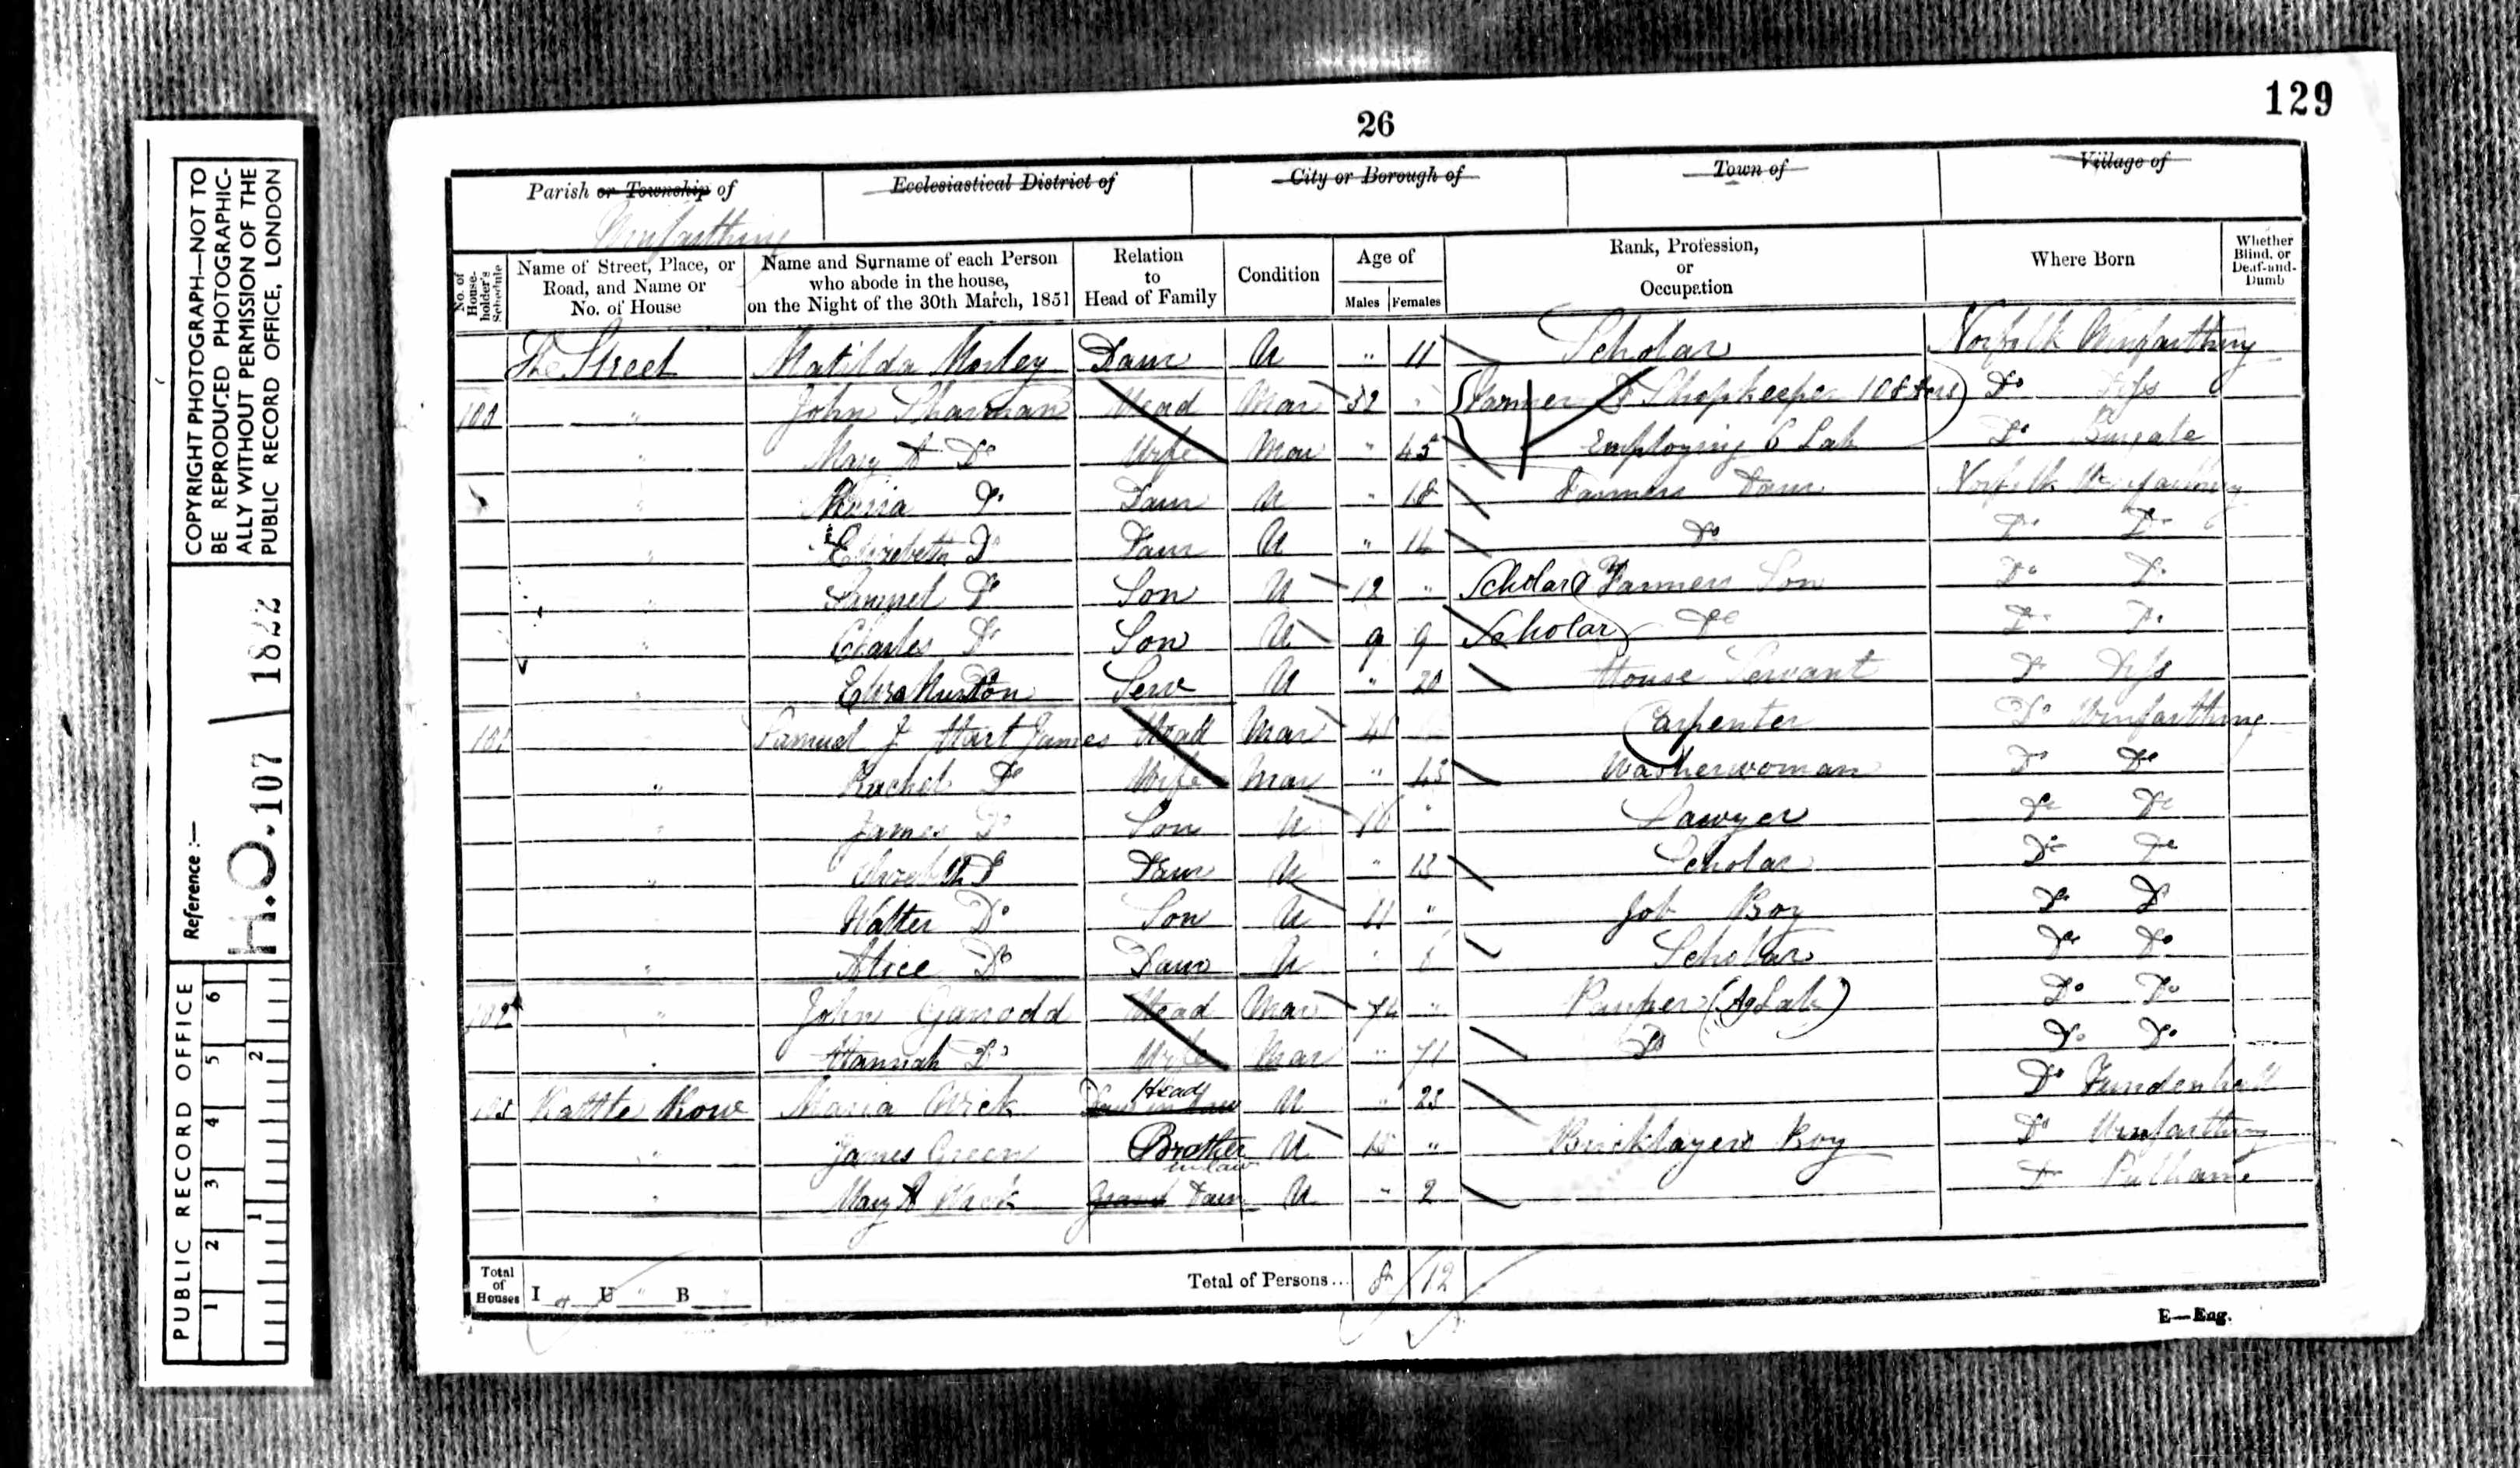 129
26
COPYRIGHT PHOTOGRAPH—NOT TO
BE REPRODUCED PHOTOGRAPHIC-
ALLY WITHOUT PERMISSION OF THE
PUBLIC RECORD OFFICE, LONDON
Reference :—
H.O. 107 / 1822
PUBLIC RECORD OFFICE
1 2 3 4 5 6
1 2
Parish or Township of Ecclesiastical District of City or Borough of Town of Village of
Winfarthing
No. of House-holder's Schedule Name of Street, Place, or Road, and Name or No. of House Name and Surname of each Person who abode in the house, on the Night of the 30th March, 1851 Relation to Head of Family Condition Age of Males Females Rank, Profession, or Occupation Where Born Whether Blind, or Deaf-and-Dumb
The Street Matilda Morley Daur U " 11 Scholar Norfolk Winfarthing
100 " John Sharman Head Mar 52 " Farmer & Shopkeeper 108 Acrs Do Diss
" Mary A Do Wife Mar " 45 Employing 6 Lab Do
" Maria Do Daur U " 18 Farmers Daur Norfolk Winfarthing
" Elizabeth Do Daur U " Do Do Do
" Samuel Do Son U 12 " Scholar Farmers Son Do Do
" Charles Do Son U 9 9 Scholar Do Do Do
" Eliza Serv U " 20 House Servant Do Diss
101 Samuel J Hart James Head Mar Carpenter Do Winfarthing
" Rachel Do Wife Mar " 45 Washerwoman Do Do
" James Do Son U 16 " Sawyer Do Do
" Elizabeth Do Daur U " 13 Scholar Do Do
" Walter Do Son U 11 " Job Boy Do Do
" Alice Do Daur U " Scholar Do Do
102 " John Garrodd Head Mar 74 " Pauper (Ag Lab) Do Do
" Hannah Do Wife Mar " 71 Do Do Do
103 Rattle Row Maria Wick Head U " 23 Do Fundenhall
" James Green Brother in law U 15 " Bricklayers Boy Do Winfarthing
" Mary A Wick Grand Daur U " 2 Do Pulham
Total of Houses I 4 U B Total of Persons... 8 12
E—Eng.